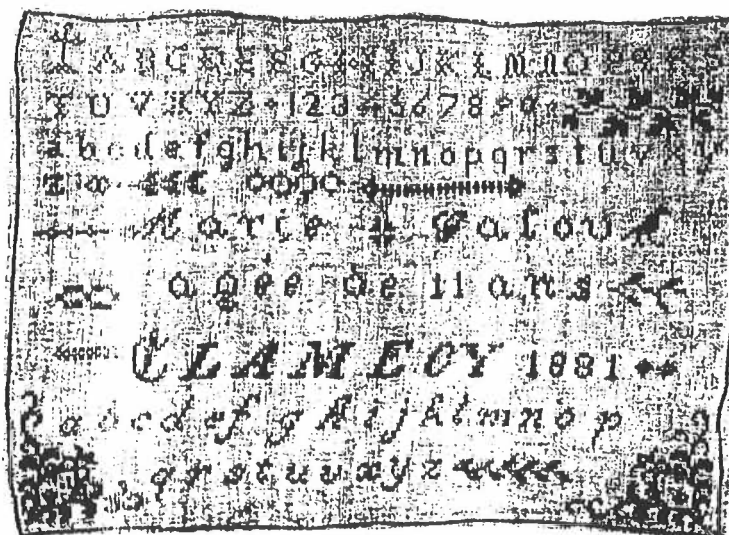 A B C D E F G H I J K L M N O P Q R S
T U V X Y Z 1 2 3 4 5 6 7 8 9 0
a b c d e f g h i j k l m n o p q r s t u v x y
z
Marie
agée de 11 ans
CLAMECY 1881
a b c d e f g h i j k l m n o p
q r s t u v x y z